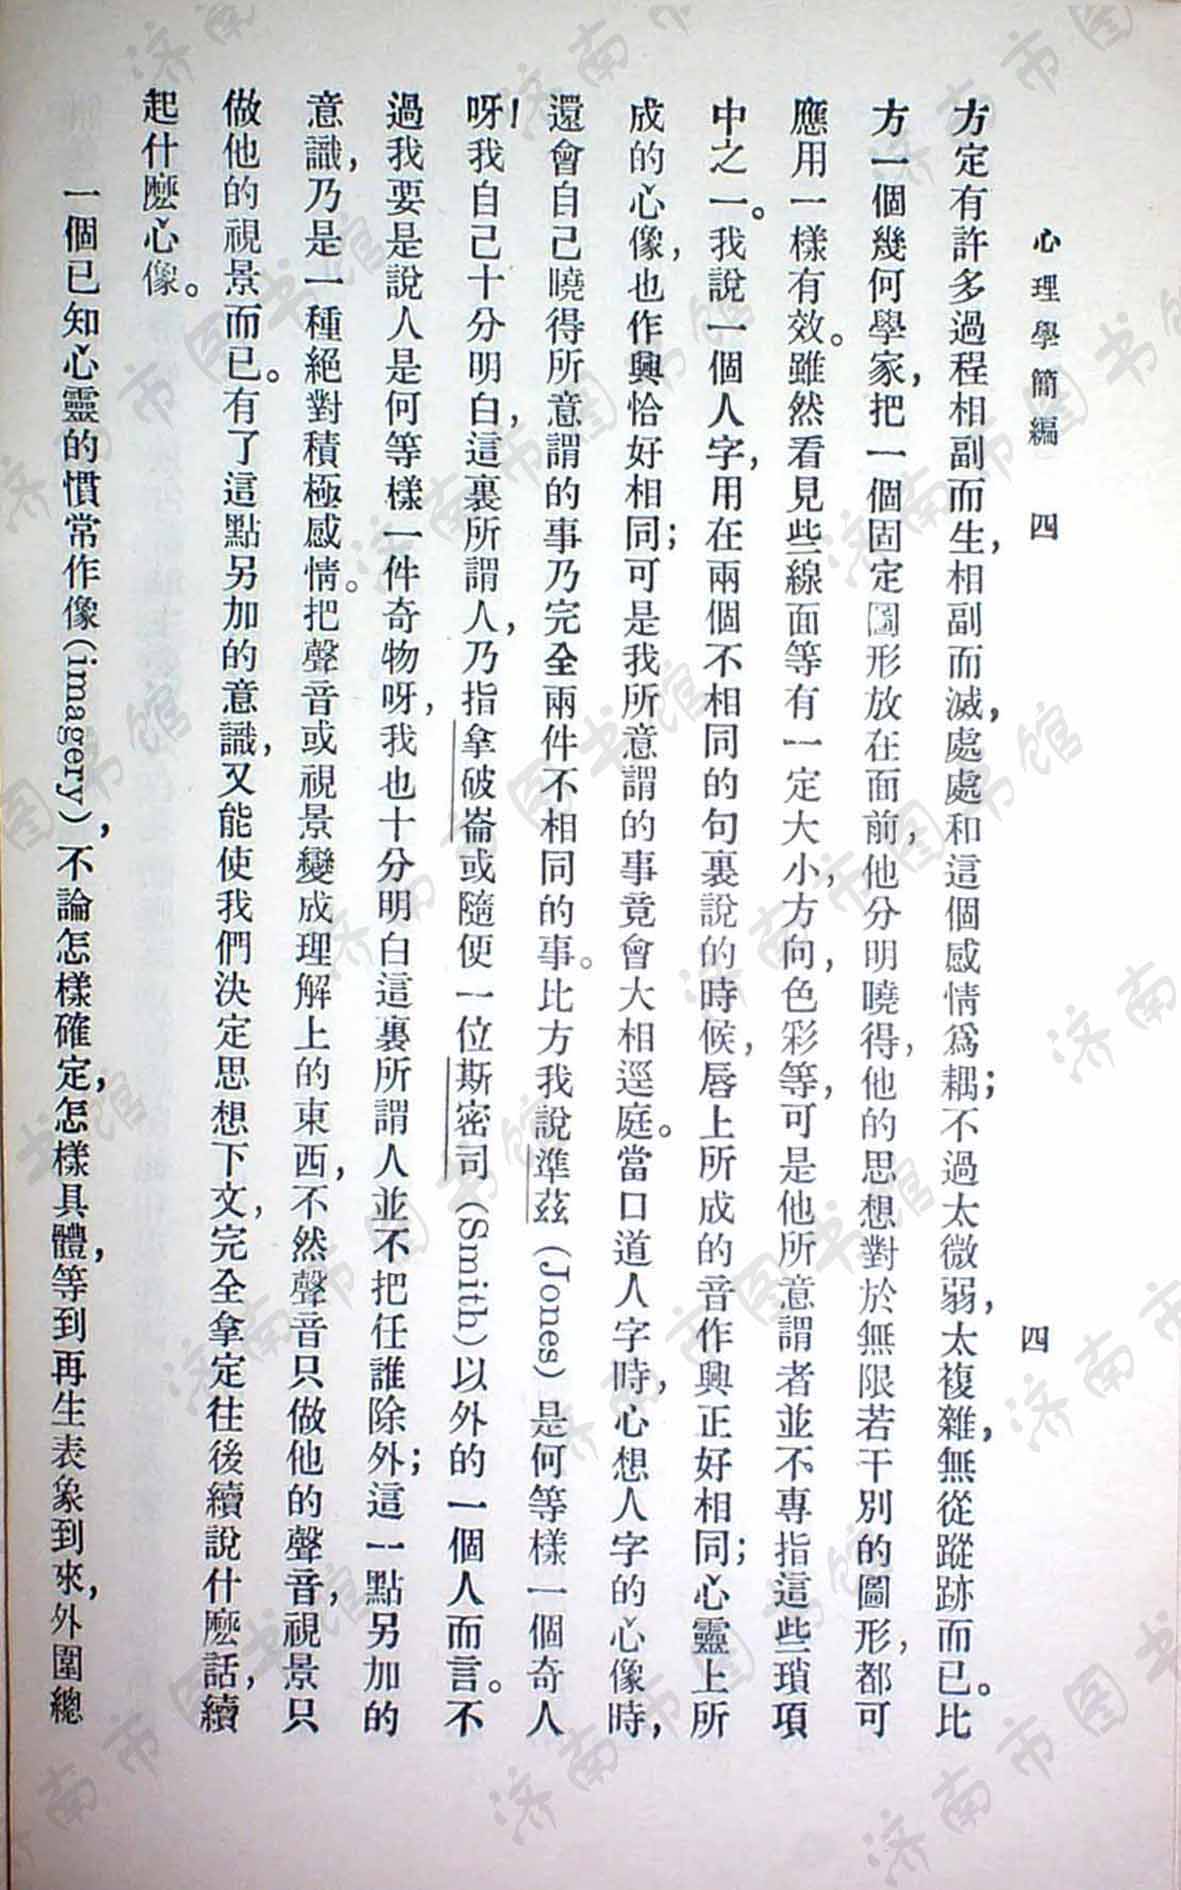 心理學簡編　四　四
方定有許多過程相副而生，相副而滅，處處和這個感情爲耦；不過太微弱，太複雜，無從蹤跡而已。比
方一個幾何學家，把一個固定圖形放在面前，他分明曉得，他的思想對於無限若干別的圖形，都可
應用一樣有效。雖然看見些線面等有一定大小，方向，色彩等，可是他所意謂者並不專指這些瑣項
中之一。我說一個人字，用在兩個不相同的句裏說的時候，唇上所成的音作興正好相同；心靈上所
成的心像，也作興恰好相同；可是我所意謂的事竟會大相逕庭。當口道人字時，心想人字的心像時，
還會自己曉得所意謂的事乃完全兩件不相同的事。比方我說準茲（Jones）是何等樣一個奇人
呀！我自己十分明白，這裏所謂人，乃指拿破崙或隨便一位斯密司（Smith）以外的一個人而言。不
過我要是說人是何等樣一件奇物呀，我也十分明白這裏所謂人並不把任誰除外；這一點另加的
意識，乃是一種絕對積極感情。把聲音或視景變成理解上的東西，不然聲音只做他的聲音，視景只
做他的視景而已。有了這點另加的意識，又能使我們決定思想下文，完全拿定往後續說什麼話，續
起什麼心像。
一個已知心靈的慣常作像（imagery），不論怎樣確定，怎樣具體，等到再生表象到來，外圍總
济南市图书馆